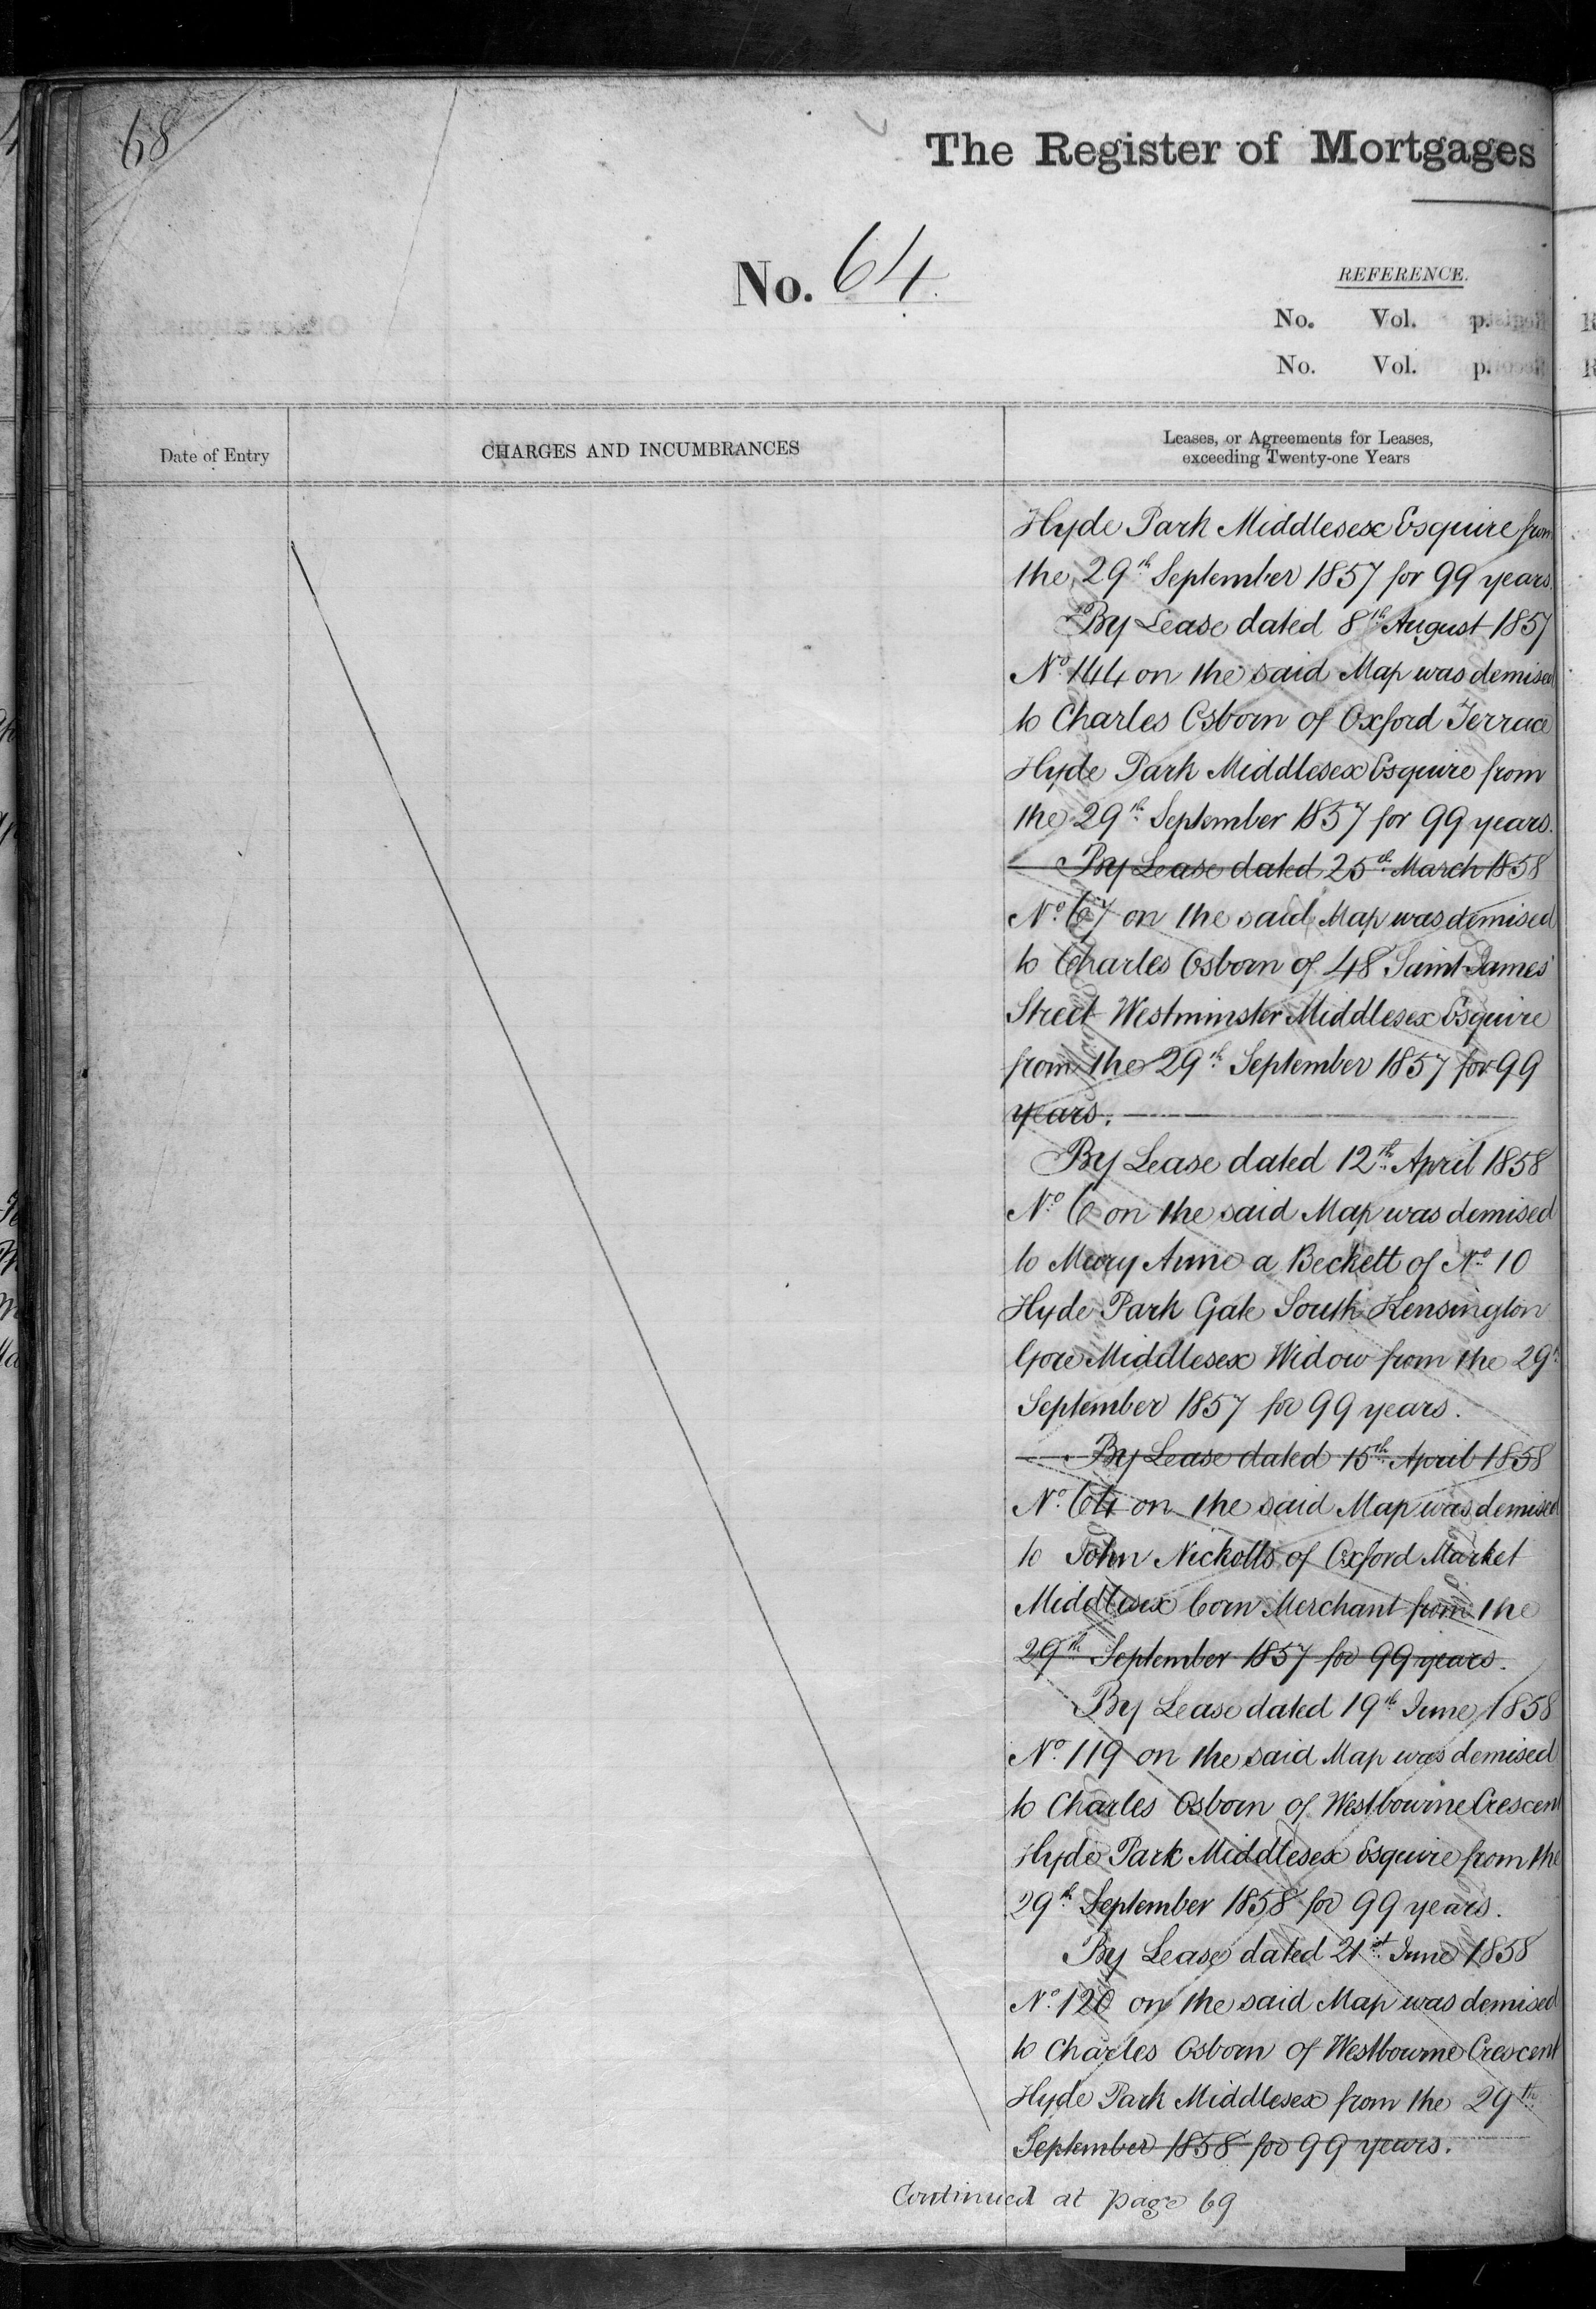 68
The Register of Mortgages
No. 64.
REFERENCE.
No. Vol. p.
No. Vol. p.
Date of Entry
CHARGES AND INCUMBRANCES
Leases, or Agreements for Leases,
exceeding Twenty-one Years
Hyde Park Middlesex Esquire from
the 29th September 1857 for 99 years.
By Lease dated 8th August 1857
No. 144 on the said Map was demised
to Charles Osborn of Oxford Terrace
Hyde Park Middlesex Esquire from
the 29th September 1857 for 99 years.
By Lease dated 25th March 1858
No. 67 on the said Map was demised
to Charles Osborn of 48 Saint James'
Street Westminster Middlesex Esquire
from the 29th September 1857 for 99
years.
By Lease dated 12th April 1858
No. 6 on the said Map was demised
to Mary Anne a Beckett of No. 10
Hyde Park Gate South Kensington
Gore Middlesex Widow from the 29th
September 1857 for 99 years.
By Lease dated 15th April 1858
No. 64 on the said Map was demised
to John Nicholls of Oxford Market
Middlesex Corn Merchant from the
29th September 1857 for 99 years.
By Lease dated 19th June 1858
No. 119 on the said Map was demised
to Charles Osborn of Westbourne Crescent
Hyde Park Middlesex Esquire from the
29th September 1858 for 99 years.
By Lease dated 21st June 1858
No. 120 on the said Map was demised
to Charles Osborn of Westbourne Crescent
Hyde Park Middlesex from the 29th
September 1858 for 99 years.
Continued at page 69